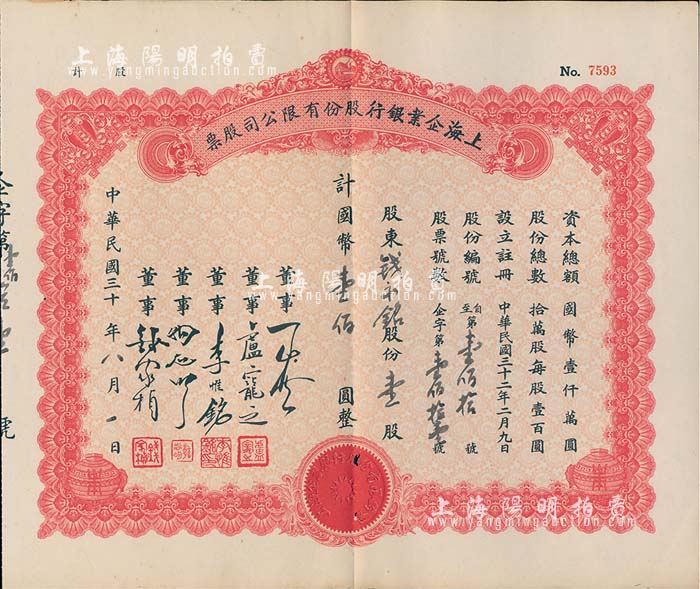 上海陽明拍賣
www.yangmingauction.com
計 股
No. 7593
上海企業銀行股份有限公司股票
資本總額 國幣壹仟萬圓
股份總數 拾萬股每股壹百圓
設立註冊 中華民國三十二年二月九日
股份編號 自至第壹佰拾 號
股票號數 企字第壹佰拾 號
股東 錢 銘 股份 壹 股
計國幣壹佰 圓整
董事
董事 盧寵之
董事 李惟銘
董事
董事
中華民國三十 年八月一日
上海陽明拍賣
www.yangmingauction.com
上海陽明拍賣
www.yangmingauction.com